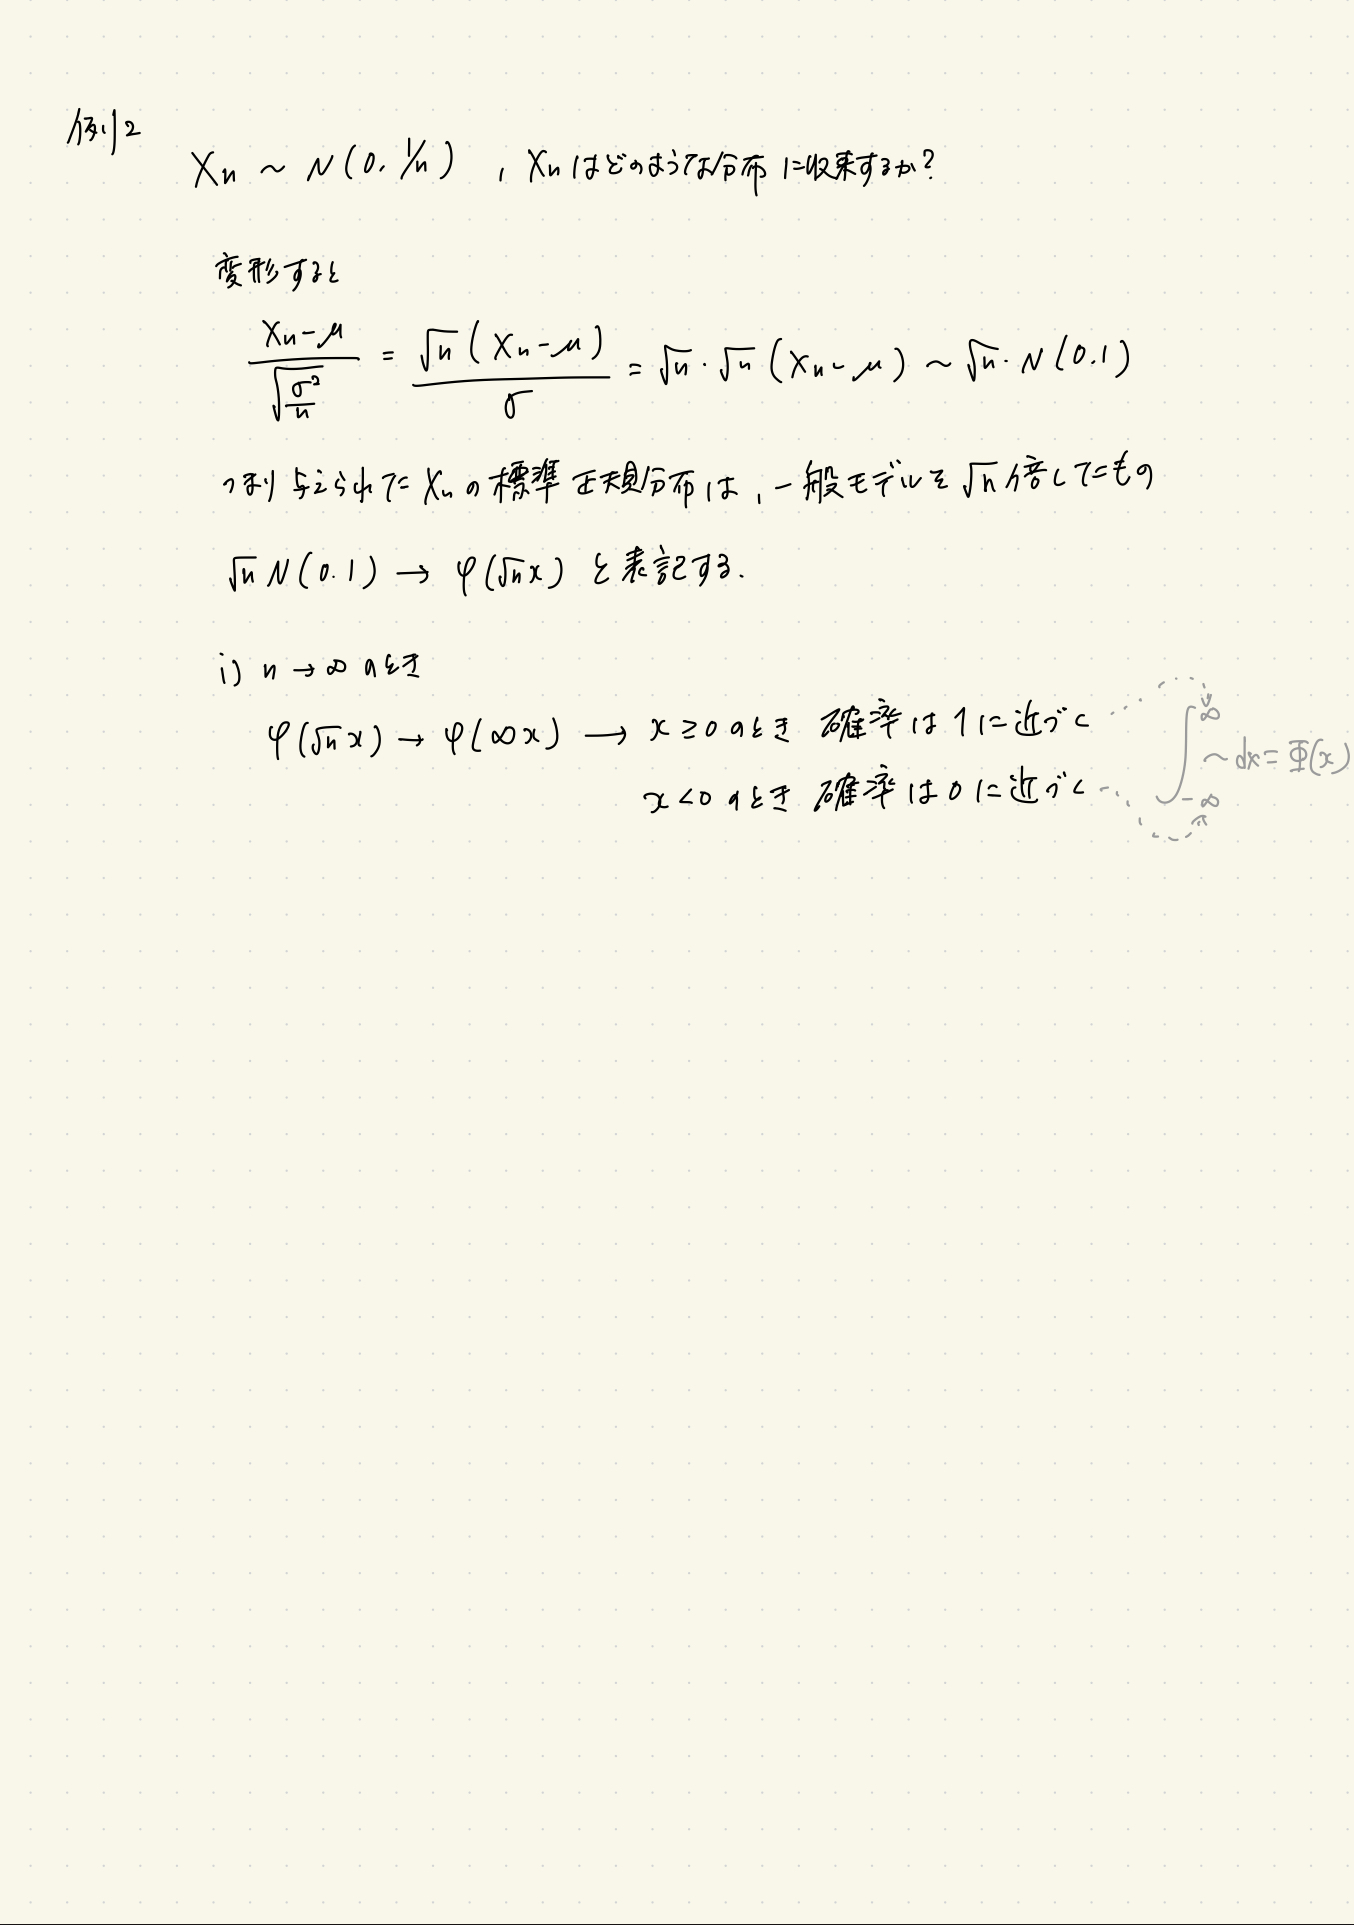 例2
Xn ~ N(0, 1/n) , Xnはどのような分布に収束するか?
変形すると
(Xn-μ)/√(σ²/n) = √n(Xn-μ)/σ = √n・√n(Xn-μ) ~ √n・N(0.1)
つまり与えられた Xnの標準正規分布は, 一般モデルを√n倍したもの
√n N(0.1) → φ(√n x) と表記する.
i) n → ∞ のとき
φ(√n x) → φ(∞x) → x ≥ 0 のとき 確率は1に近づく
x < 0 のとき 確率は0に近づく
∫_{-∞}^{∞} ~ dx = Φ(x)